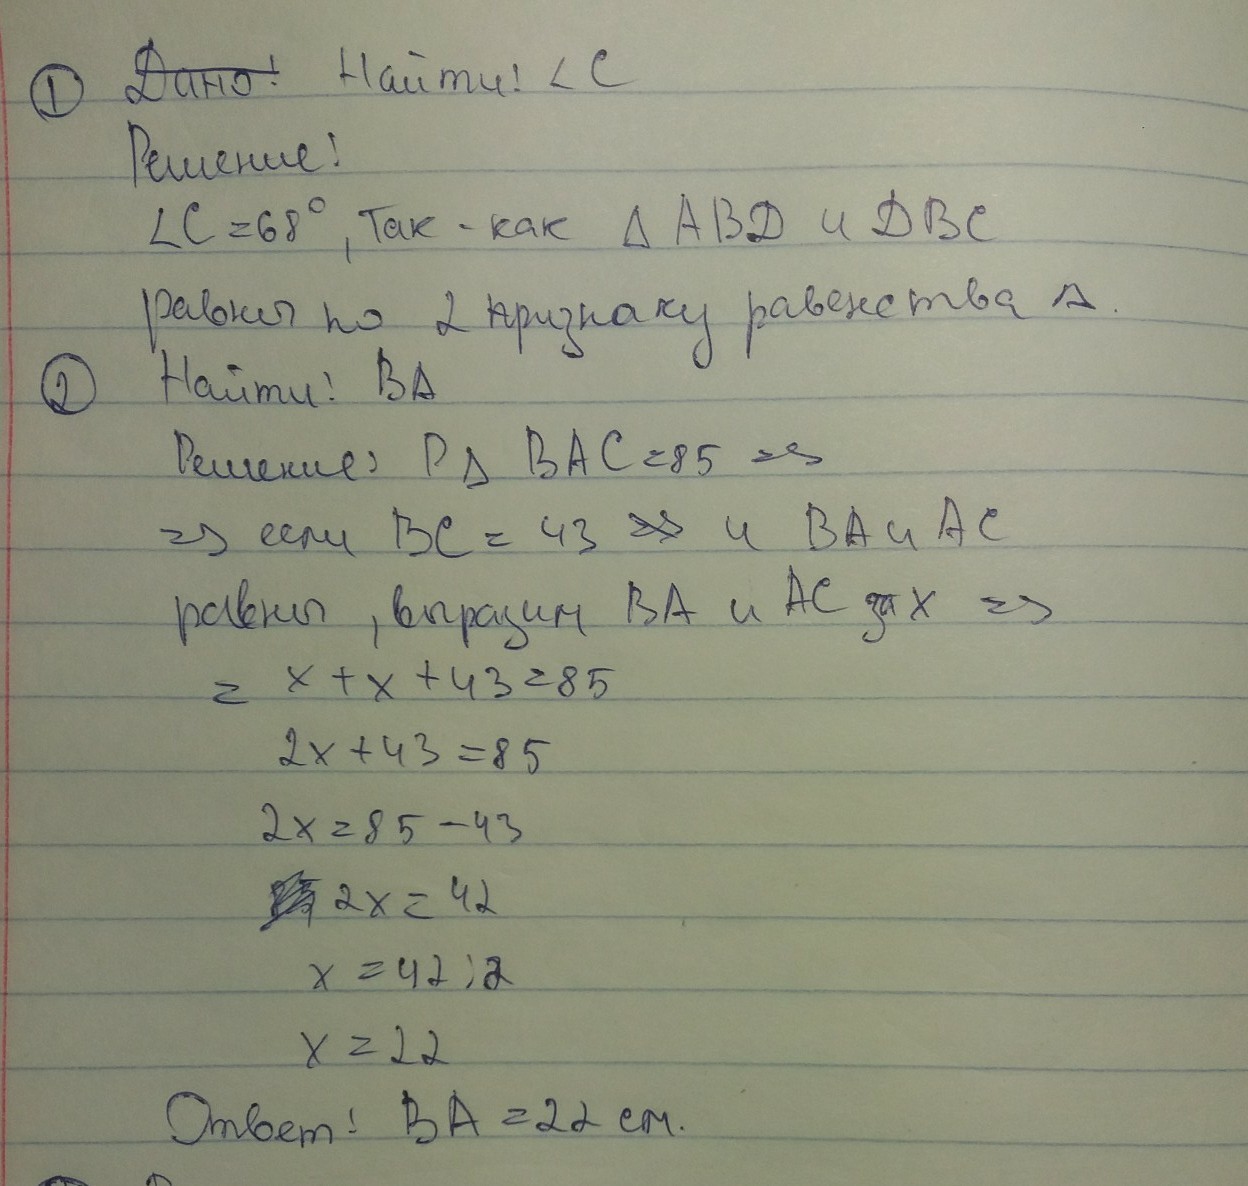 ① Дано: Найти: ∠C
Решение:
∠C=68°, так-как Δ ABD и DBC
равны по 2 признаку равенства Δ.
② Найти: BA
Решение: P Δ BAC=85 =>
=> если BC = 43 => и BA и AC
равны, выразим BA и AC за x =>
= x+x+43=85
2x+43=85
2x=85-43
2x=42
x=42:2
x=22
Ответ: BA=22 см.